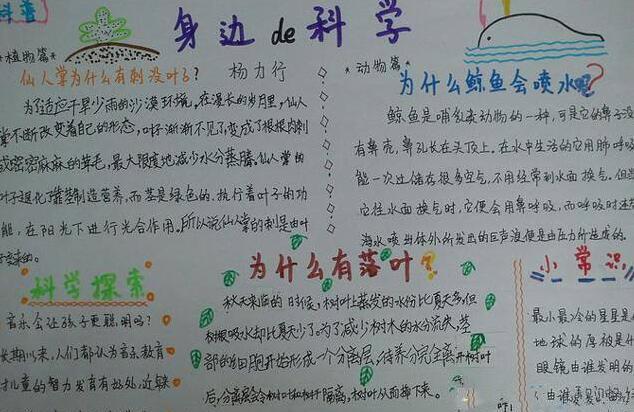 科普
身边de科学
*植物篇*
仙人掌为什么有刺没叶？
杨力行
为了适应干旱少雨的沙漠环境，在漫长的岁月里，仙人
掌不断改变着自己的形态，叶子渐渐不见了变成了根根肉刺
或密密麻麻的茸毛，最大限度地减少水分蒸腾。仙人掌的
叶子退化 制造营养，而茎是绿色的，执行着叶子的功
能，在阳光下进行光合作用。所以说仙人掌的刺是由叶
变来的。
*动物篇*
为什么鲸鱼会喷水呢？
鲸鱼是哺乳类动物的一种，可是它的鼻子没
有鼻壳，鼻孔长在头顶上。在水中生活的它用肺呼吸
能一次过储存很多空气，不用经常到水面换气。但当
它往水面换气时，它便会用鼻呼吸，而呼吸时还
海水喷出体外所发出的巨声浪便是由压力所造成的。
科学探索
音乐会让孩子更聪明吗？
长期以来，人们都认为音乐教育
对儿童的智力发育有好处，近
为什么有落叶？
秋天来临的时候，树叶上蒸发的水份比夏天多，但
树根吸水却比夏天少了。为了减少树木的水分流失，茎
部的细胞开始形成一个分离层，待养分完全离开树叶
后，分离层会令树叶和树杆隔离，树叶从而掉下来。
小常识
最小最冷的星星是
地球的厚极是什
眼镜由谁发明的
（由谁发